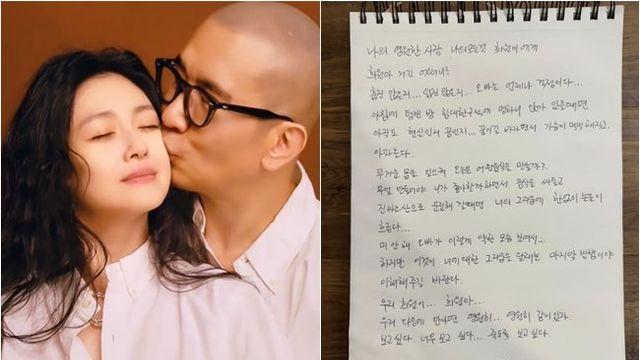 나의 영원한 사랑 나의모든것 희원이에게
희원아 거긴 어떠니?
춥진 않은지... 덥진 않은지... 오빠는 언제나 걱정이다...
아침에 텅빈 방 침대한구석에 멍하니 앉아 있을때면
아직도 현실인지 꿈인지... 꿈이길 바라면서 가슴이 먹먹해지고
아파온다.
무거운 몸을 일으켜 오늘도 어떤음식을 만들까?
무얼 만들어야 니가 좋아할까하면서 음식을 싸들고
진바오산으로 운전해 갈때면 너의 그리움에 한없이 눈물이
흐른다...
미안해 오빠가 이렇게 약한 모습 보여서...
하지만 이것이 너에대한 그리움을 달래는 마지막 방법이야
이해해주길 바란다.
우리 희원이... 희원아...
우리 다음에 만나면 영원히... 영원히 같이있자
보고싶다. 너무 보고 싶다... 죽도록 보고싶다.